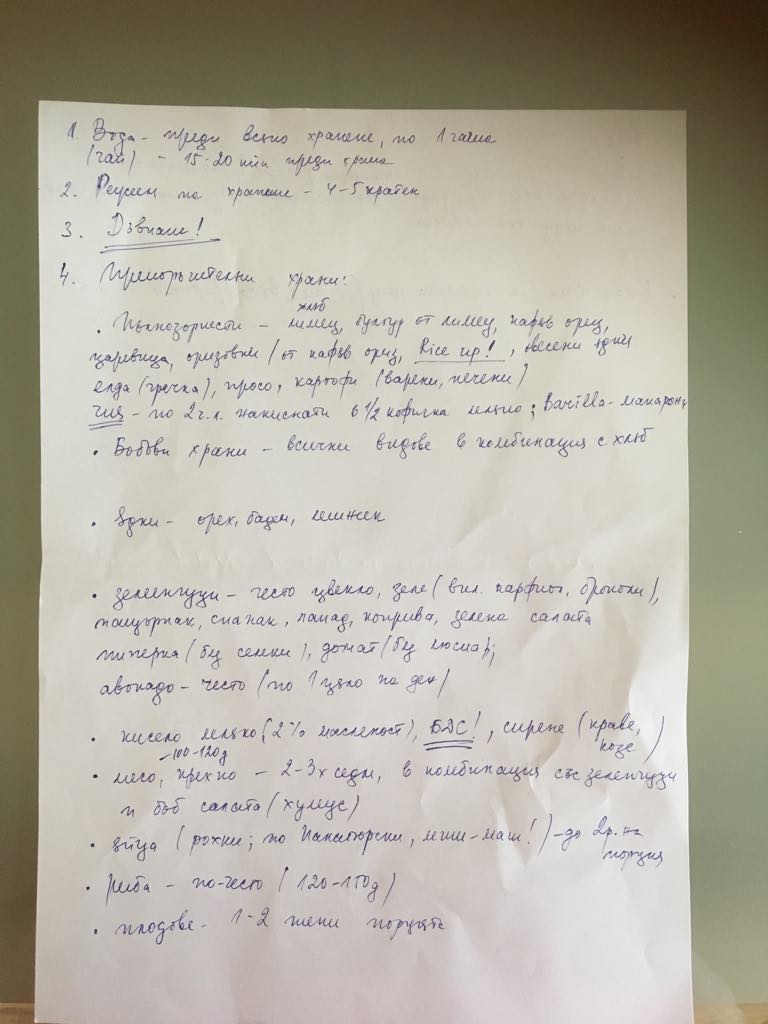 1. Вода - преди всяко хранене, по 1 чаша
(чай) - 15-20 min преди храна
2. Режим на хранене - 4-5 кратен
3. Движение!
4. Препоръчителни храни:
хляб
• Пълнозърнести - лимец, булгур от лимец, кафяв ориз,
царевица, оризовки / от кафяв ориз, Rice up!, овесени ядки
елда (гречка), просо, картофи (варени, печени)
чия - по 2 ч.л. накиснати в 1/2 кофичка мляко; Barilla - макарони
• Бобови храни - всички видове в комбинация с хляб
• Ядки - орех, бадем, лешник
• зеленчуци - често цвекло, зеле (вкл. карфиол, броколи),
пащърнак, спанак, лапад, коприва, зелена салата
пиперка (без семки), домат (без люспа);
авокадо - често (по 1 цяло на ден)
• кисело мляко (2% масленост), БДС!, сирене (краве,
козе)
~100-120g
• месо, крехко - 2-3х седм, в комбинация със зеленчуци
и боб салата (хумус)
• яйца (рохки; по Панагюрски, миш-маш!) - до 2р. на
порция
• риба - по-често (120-150g)
• плодове - 1-2 порции